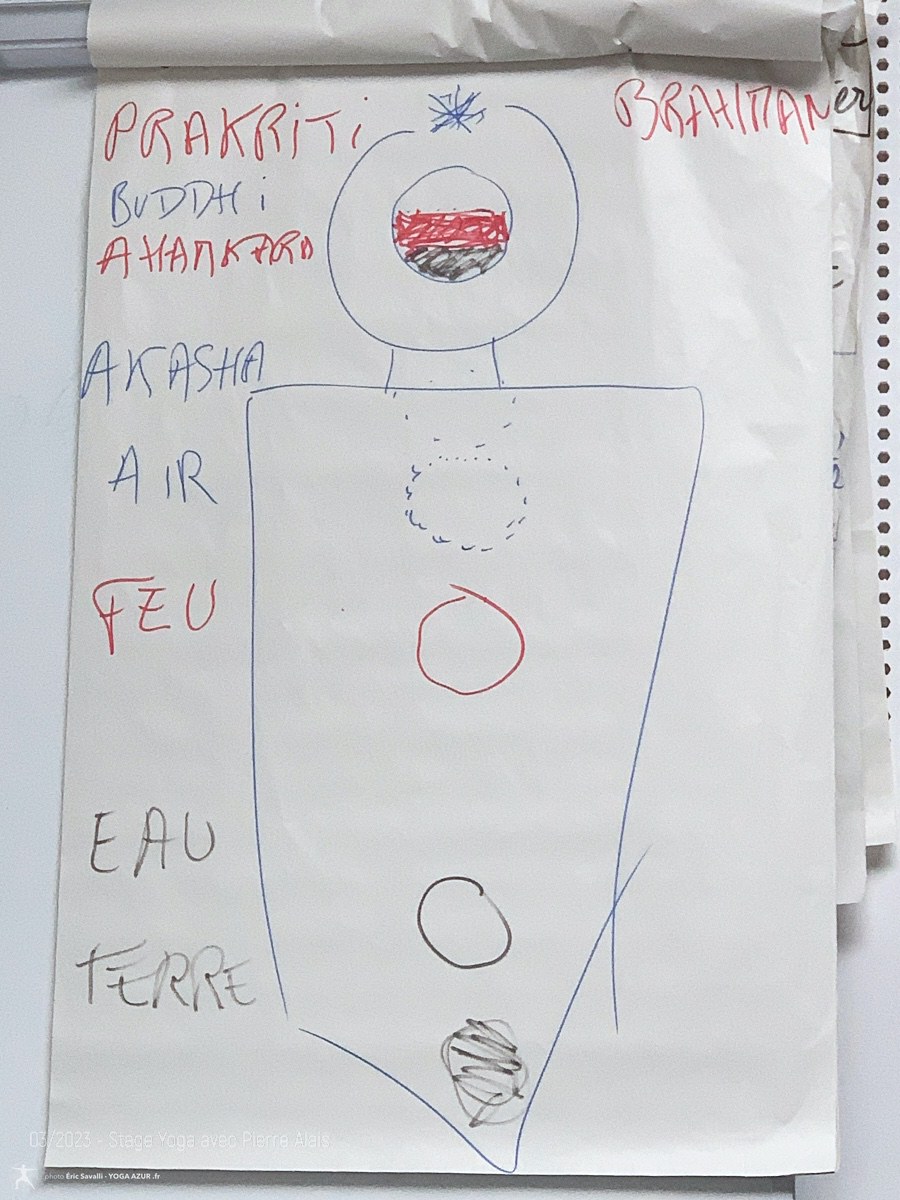 PRAKRiTi
BRAHMAN
BUDDHi
AHAMKARA
AKASHA
AIR
FEU
EAU
TERRE
er
03/2023 - Stage Yoga avec Pierre Alais
photo Éric Savalli - YOGA AZUR .fr